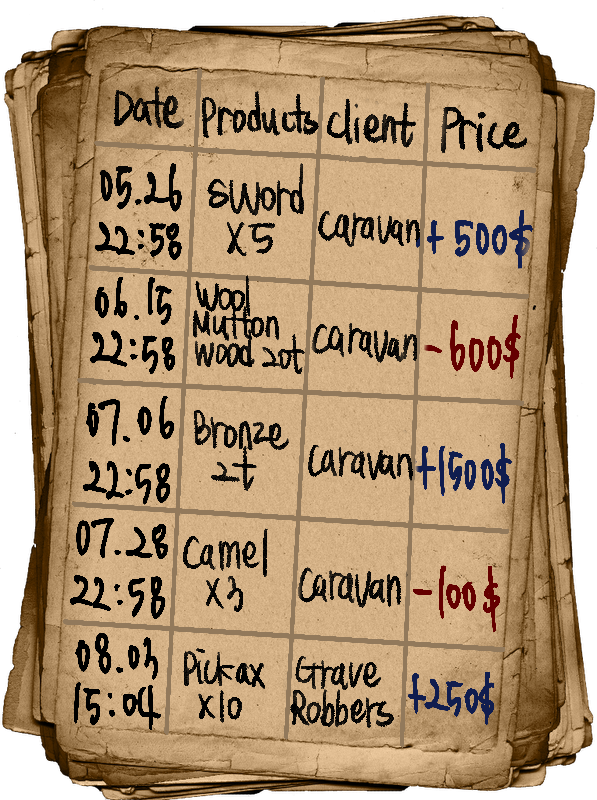 Date Products client Price
05.26
22:58
sword
X5
caravan
+500$
06.15
22:58
Wool
Mutton
Wood 20t
caravan
-600$
07.06
22:58
Bronze
2t
caravan
+1500$
07.28
22:58
Camel
X3
caravan
-100$
08.03
15:04
Pickax
X10
Grave
Robbers
+250$